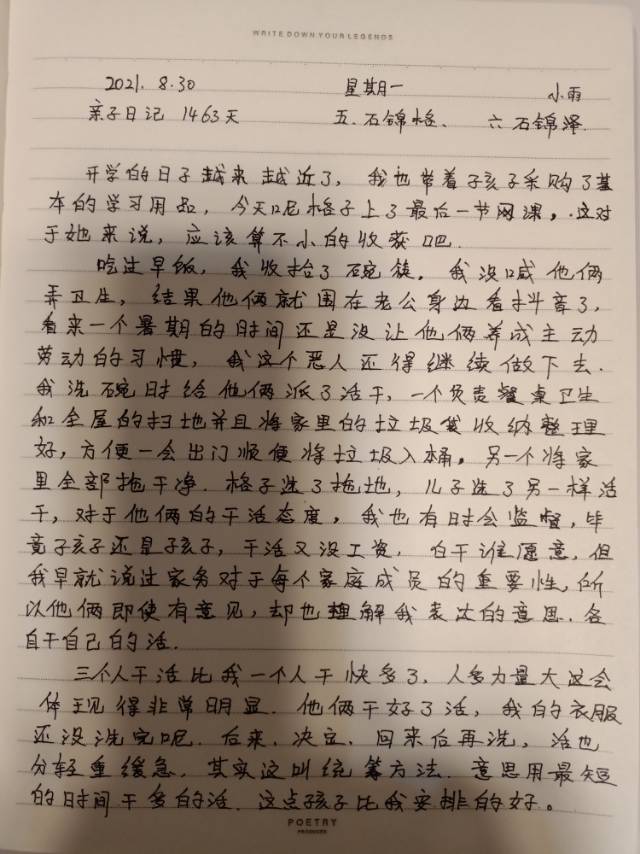 WRITE DOWN YOUR LEGENDS
2021. 8.30 星期一 小雨
亲子日记 1463天 五.石锦格、 六石锦泽.
开学的日子越来越近了,我也带着孩子采购了基
本的学习用品,今天呢格子上了最后一节网课,这对
于她来说,应该算不小的收获吧.
吃过早饭,我收拾了碗筷。我没喊他俩
弄卫生,结果他俩就围在老公身边看抖音了,
看来一个暑期的时间还是没让他俩养成主动
劳动的习惯,我这个恶人还得继续做下去.
我洗碗时给他俩派了活干,一个负责餐桌卫生
和全屋的扫地并且将家里的垃圾袋收纳整理
好,方便一会出门顺便将垃圾入桶。另一个将家
里全部拖干净.格子选了拖地,儿子选了另一样活
干,对于他俩的干活态度,我也有时会监督,毕
竟孩子还是孩子,干活又没工资,白干谁愿意,但
我早就说过家务对于每个家庭成员的重要性,所
以他俩即使有意见,却也理解我表达的意思.各
自干自己的活.
三个人干活比我一个人干快多了,人多力量大这会
体现得非常明显.他俩干好了活,我的衣服
还没洗完呢.后来,决定,回来后再洗,活也
分轻重缓急,其实这叫统筹方法.意思用最短
的时间干多的活.这点孩子比我安排的好。
POETRY
PRODUCER